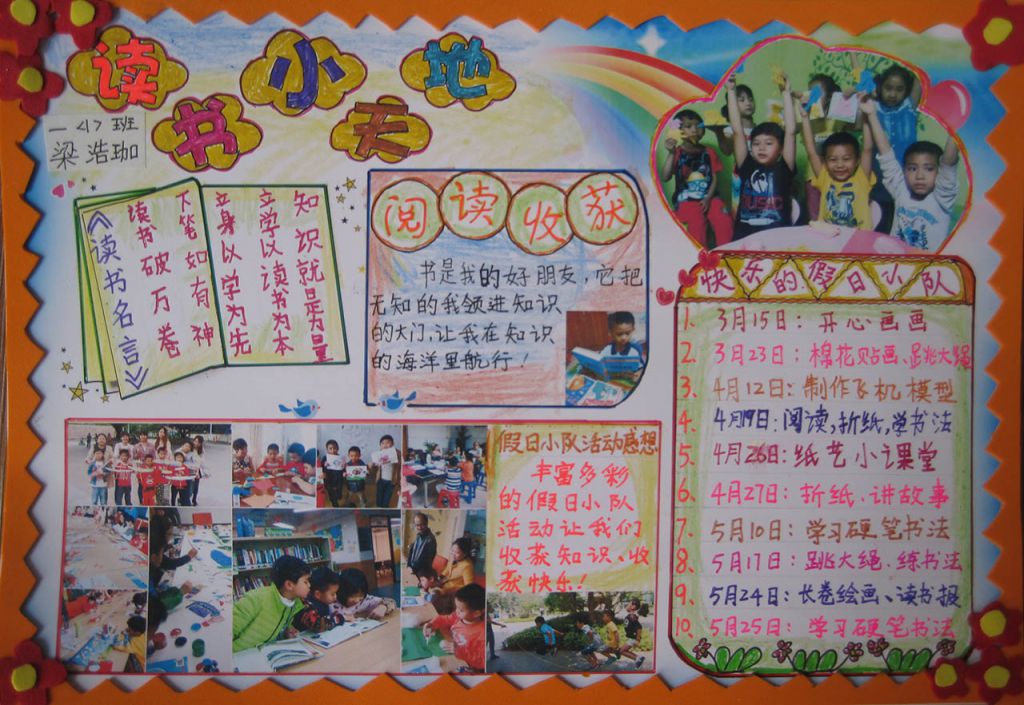 读书小天地
一<1>班
梁浩珈
《读书名言》
读书破万卷
下笔如有神
立身以学为先
立学以读书为本
知识就是力量
阅读收获
书是我的好朋友,它把
无知的我领进知识
的大门,让我在知识
的海洋里航行!
快乐的假日小队
1、3月15日:开心画画
2、3月23日:棉花贴画、跳大绳
3、4月12日:制作飞机模型
4、4月19日:阅读,折纸,学书法
5、4月26日:纸艺小课堂
6、4月27日:折纸、讲故事
7、5月10日:学习硬笔书法
8、5月17日:跳大绳、练书法
9、5月24日:长卷绘画、读书报
10、5月25日:学习硬笔书法
假日小队活动感想
丰富多彩
的假日小队
活动让我们
收获知识、收
获快乐!